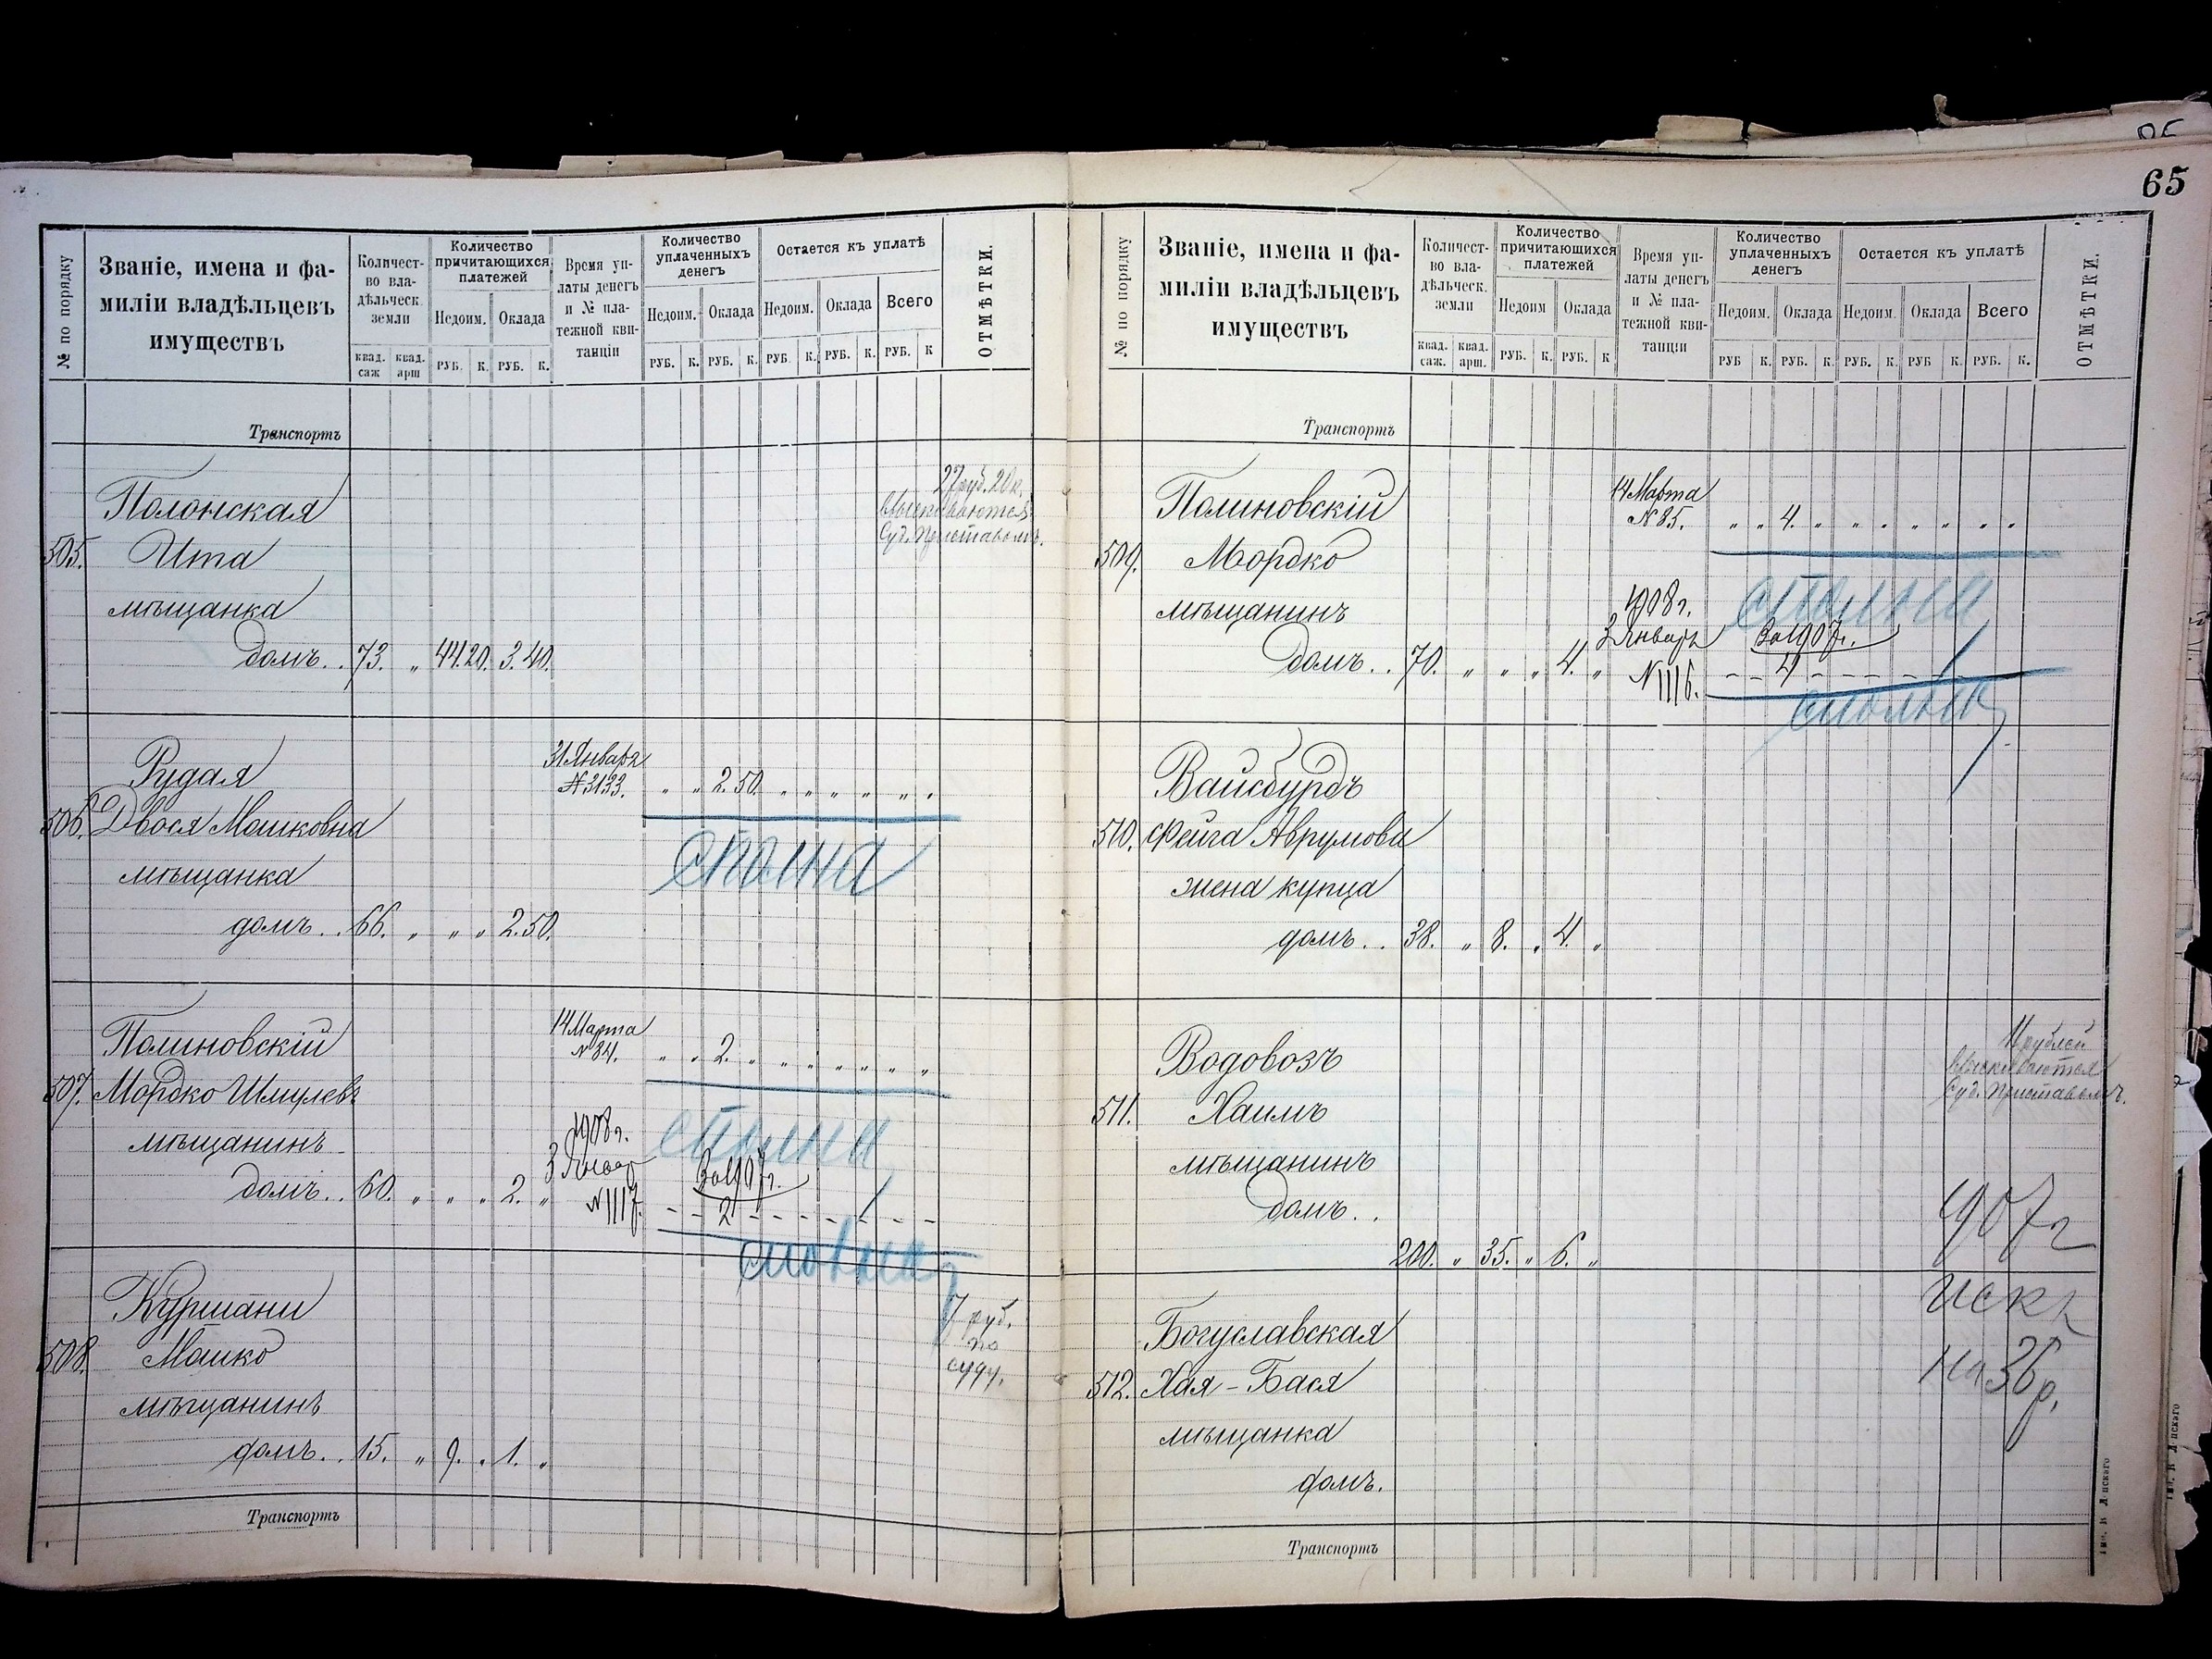 65
№ по порядку
Званіе, имена и фа-
миліи владѣльцевъ
имуществъ
Количест-
во вла-
дѣльческ.
земли
квад. саж
квад. арш
Количество
причитающихся
платежей
Недоим. Оклада
РУБ. К. РУБ. К.
Время уп-
латы денегъ
и № пла-
тежной кви-
танціи
Количество
уплаченныхъ
денегъ
Недоим. Оклада
РУБ. К. РУБ. К.
Остается къ уплатѣ
Недоим. Оклада Всего
РУБ К. РУБ. К. РУБ. К
ОТМѢТКИ.
Транспортъ
27 руб. 20 к.
взыскиваются
Суд. Приставомъ.
Полонская
505. Ита
мѣщанка
домъ.. 73. „ 44.20. 3.40.
Рудая
31 Января
№ 3133. „ „ 2.50. „ „ „ „ „ „
506. Двося Мошковна
сполна
мѣщанка
домъ.. 66. „ „ „ 2.50.
Полиновскій
14 Марта
№ 84. „ „ 2. „ „ „ „ „ „ „
507. Мордко Шмулевъ
сполна
мѣщанинъ
1908 г.
3 Январ
№ 1117.
за 1907 г.
2
домъ.. 60. „ „ „ 2. „
сполна
Куршани
7 руб.
по
суду.
508. Мошко
мѣщанинъ
домъ.. 15. „ 9. „ 1. „
Транспортъ
№ по порядку
Званіе, имена и фа-
миліи владѣльцевъ
имуществъ
Количест-
во вла-
дѣльческ.
земли
квад. саж.
квад. арш.
Количество
причитающихся
платежей
Недоим Оклада
РУБ. К. РУБ. К
Время уп-
латы денегъ
и № пла-
тежной кви-
танціи
Количество
уплаченныхъ
денегъ
Недоим. Оклада
РУБ К. РУБ. К.
Остается къ уплатѣ
Недоим. Оклада Всего
РУБ. К. РУБ К. РУБ. К.
ОТМѢТКИ.
Транспортъ
Полиновскій
14 Марта
№ 85. „ „ 4. „ „ „ „ „ „ „
509. Мордко
сполна
мѣщанинъ
1908 г.
3 Января
№ 1116.
за 1907 г.
4
домъ.. 70. „ „ „ 4. „
сполна
Вайсбурдъ
510. Фейга Аврумова
жена купца
домъ.. 38. „ 8. „ 4. „
Водовозъ
11 рублей
взыскиваются
Суд. Приставомъ.
511. Хаимъ
мѣщанинъ
домъ..
200. „ 35. „ 6. „
907 г
искъ
на 36 р.
Богуславская
512. Хая-Бася
мѣщанка
домъ.
Транспортъ